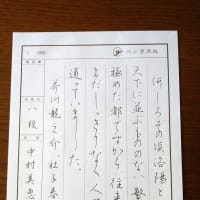 ペン学用紙
何しろその頃洛陽と
天下に並ぶもののない、繁
極めた都ですから、往来
まだしきりなく、人
通っていました。
芥川龍之介 杜子春
八段
中村美恵